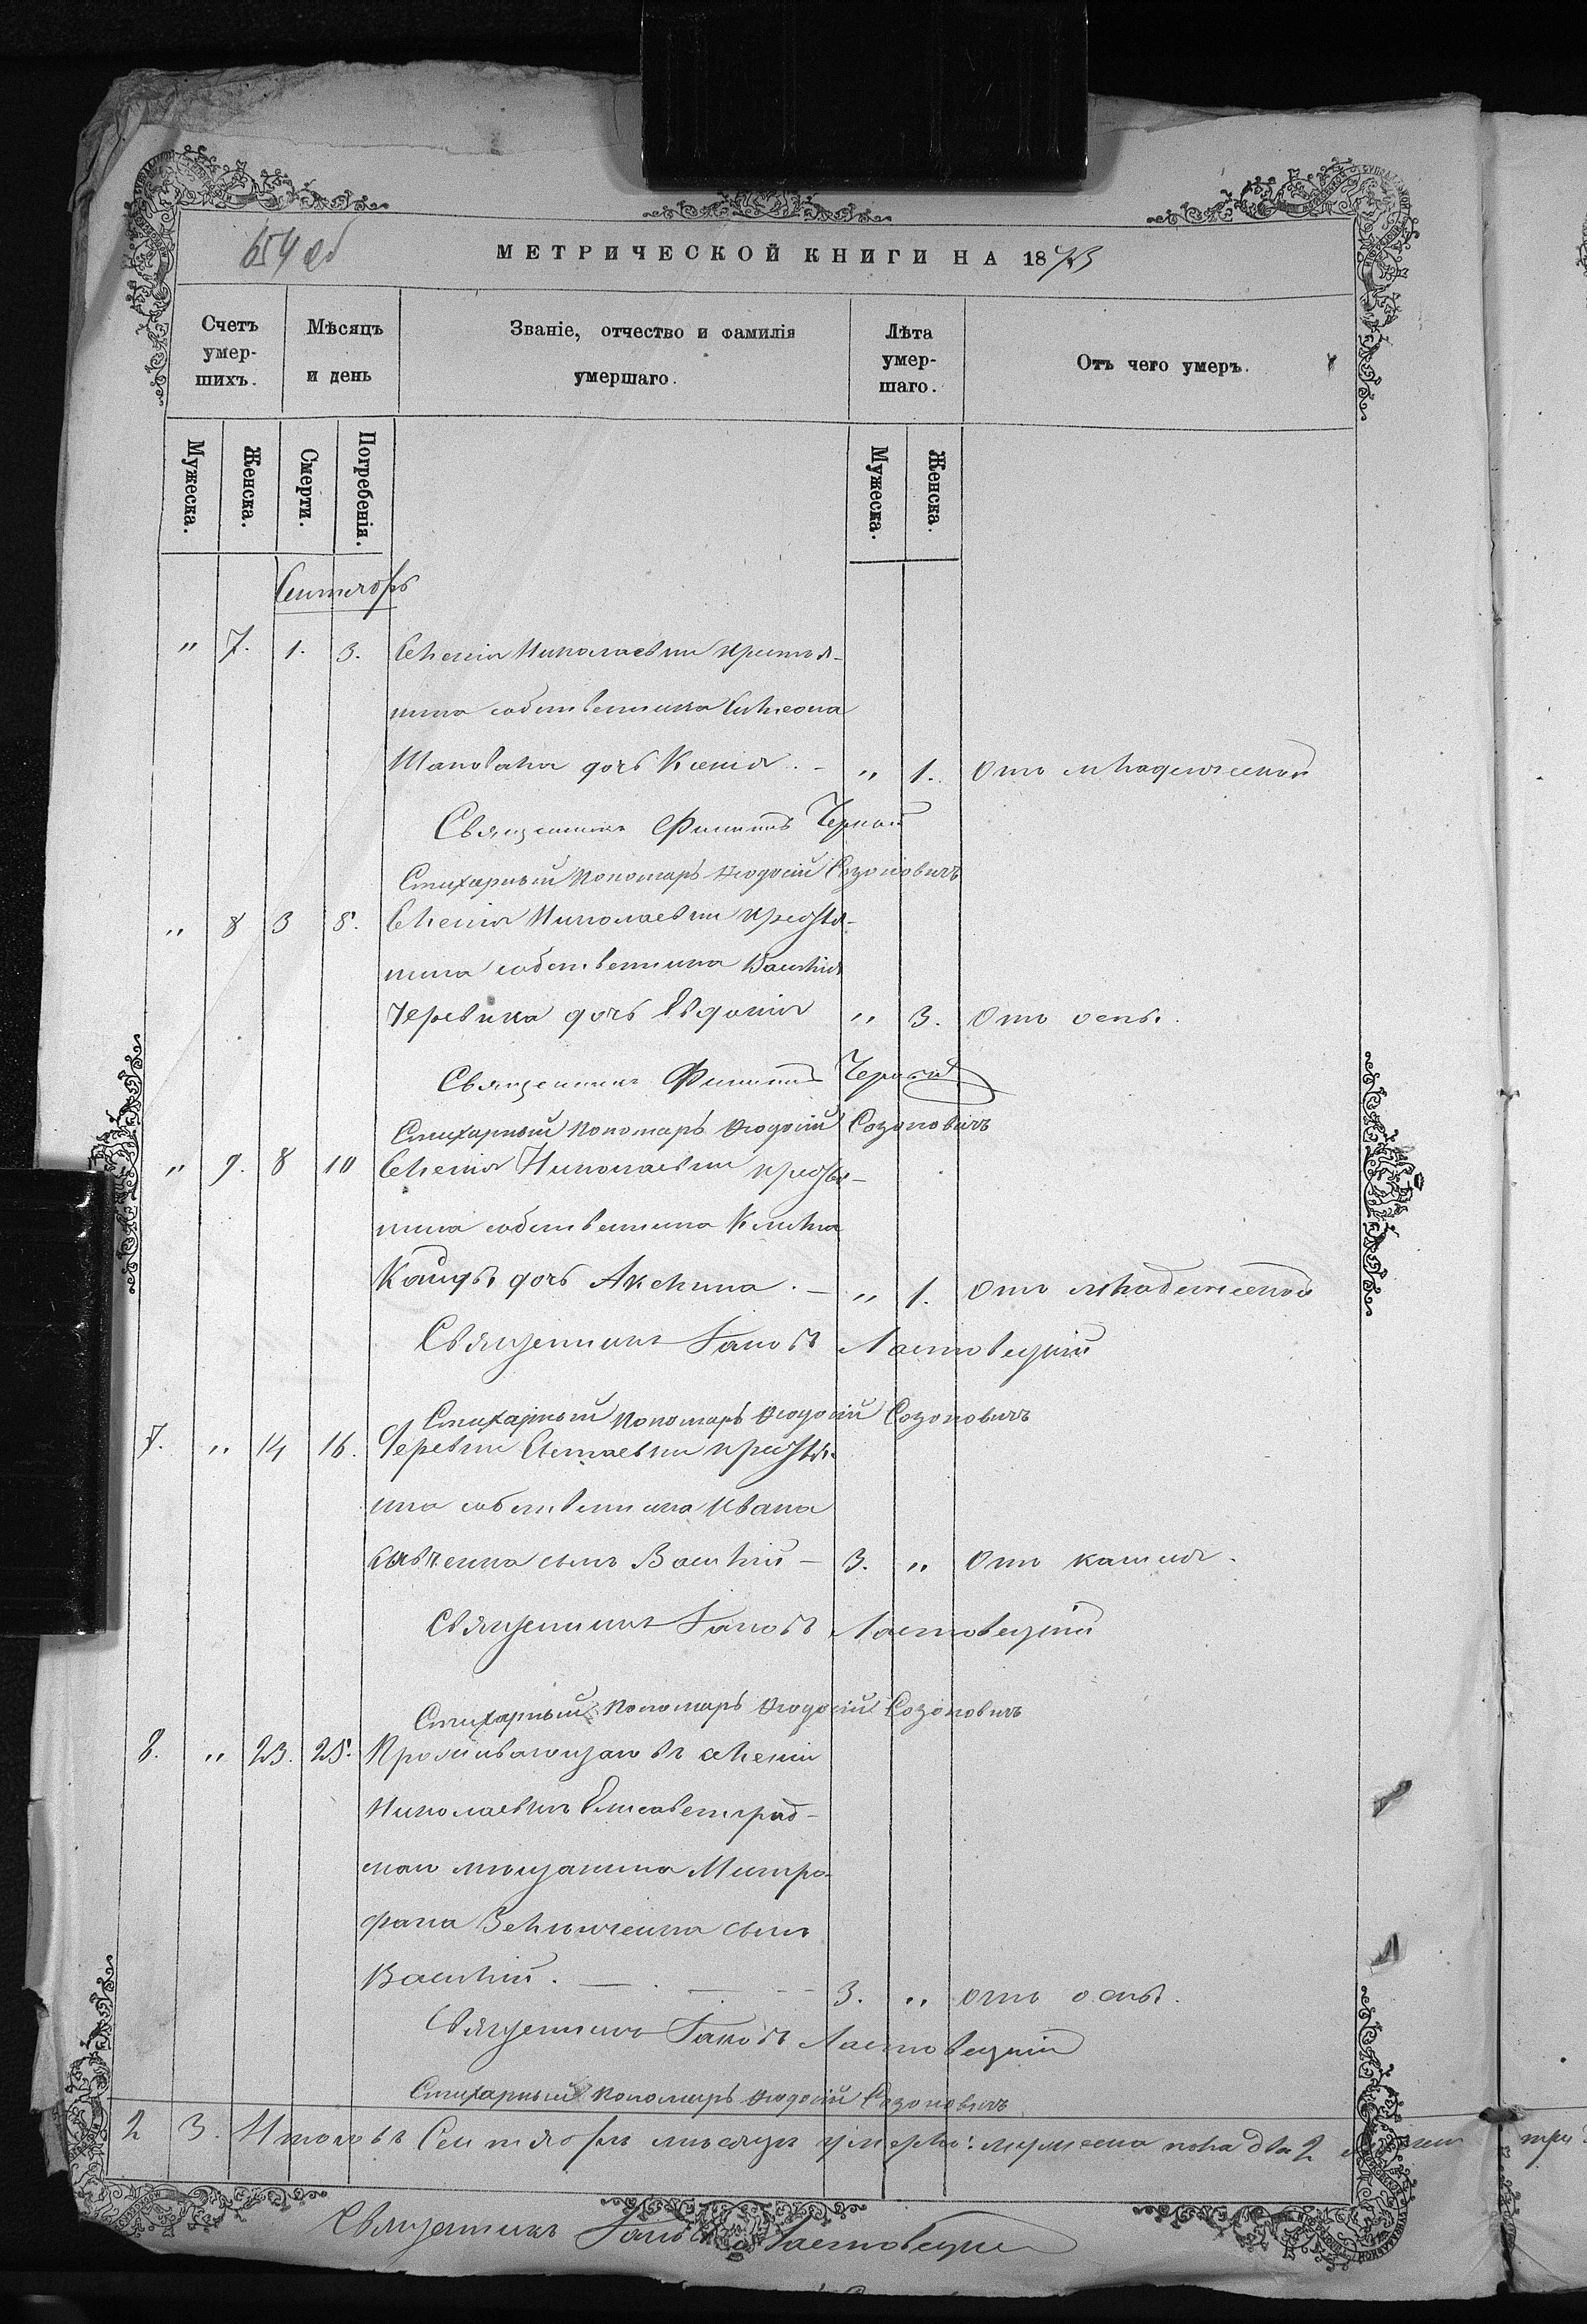 654 об
МЕТРИЧЕСКОЙ КНИГИ НА 1873
Счетъ умер-шихъ.
Мѣсяцъ и день
Званіе, отчество и фамилія умершаго.
Лѣта умер-шаго.
Отъ чего умеръ.
Мужеска.
Женска.
Смерти.
Погребенія.
Мужеска.
Женска.
Сентябрь
" 7. 1. 3. Селенія Николаевки крестья-
нина собственника Симеона
Шаповала дочь Ксенія. – " 1. Отъ младенческой
Священникъ Филиппъ Черный
Стихарный Пономарь Ѳеодосій Созоновичъ
" 8 3 5. Селенія Николаевки крестья-
нина собственника Василія
Черевика дочь Евдокія " 3. Отъ оспы.
Священникъ Филиппъ Черный
Стихарный Пономарь Ѳеодосій Созоновичъ
" 9. 8 10 Селенія Николаевки крестья-
нина собственника Климa
дочь Акелина. – " 1. Отъ младенческой
Священникъ Іаковъ Ластовецкій
Стихарный Пономарь Ѳеодосій Созоновичъ
7. " 14 16. Деревни крестья-
нина собственника Ивана
сынъ Василій – 3. " Отъ кашля.
Священникъ Іаковъ Ластовецкій
Стихарный Пономарь Ѳеодосій Созоновичъ
8. " 23. 25. Проживающаго въ селеніи
Николаевкѣ Елисаветград-
скаго мѣщанина Митро-
фана сынъ
Василій. – 3. " Отъ оспы.
Священникъ Іаковъ Ластовецкій
Стихарный Пономарь Ѳеодосій Созоновичъ
2 3. Итого въ Сентябрѣ мѣсяцѣ умерло: мужеска пола два 2 три
Священникъ Іаковъ Ластовецкій